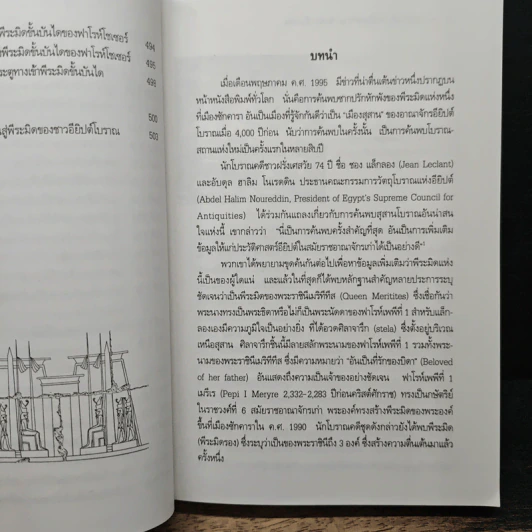 พีระมิดขั้นบันไดของฟาโรห์โซเซอร์ 494
พีระมิดขั้นบันไดของฟาโรห์โซเซอร์ 495
ะตูทางเข้าพีระมิดขั้นบันได 496
500
นสู่พีระมิดของชาวอียิปต์โบราณ 503
บทนำ
เมื่อเดือนพฤษภาคม ค.ศ. 1995 มีข่าวที่น่าตื่นเต้นข่าวหนึ่งปรากฏบน
หน้าหนังสือพิมพ์ทั่วโลก นั่นคือการค้นพบซากปรักหักพังของพีระมิดแห่งหนึ่ง
ที่เมืองซัคคารา อันเป็นเมืองที่รู้จักกันดีว่าเป็น “เมืองสุสาน” ของอาณาจักรอียิปต์
โบราณเมื่อ 4,000 ปีก่อน นับว่าการค้นพบในครั้งนั้น เป็นการค้นพบโบราณ-
สถานแห่งใหม่เป็นครั้งแรกในหลายสิบปี
นักโบราณคดีชาวฝรั่งเศสวัย 74 ปี ชื่อ ชอง แล็กลอง (Jean Leclant)
และอับดุล ฮาลิม โนเรดดิน ประธานคณะกรรมการวัตถุโบราณแห่งอียิปต์
(Abdel Halim Noureddin, President of Egypt's Supreme Council for
Antiquities) ได้ร่วมกันแถลงเกี่ยวกับการค้นพบสุสานโบราณอันน่าสน
ใจแห่งนี้ เขากล่าวว่า “นี่เป็นการค้นพบครั้งสำคัญที่สุด อันเป็นการเพิ่มเติม
ข้อมูลให้แก่ประวัติศาสตร์อียิปต์ในสมัยราชอาณาจักรเก่าได้เป็นอย่างดี”
พวกเขาได้พยายามขุดค้นกันต่อไปเพื่อหาข้อมูลเพิ่มเติมว่าพีระมิดแห่ง
นี้เป็นของผู้ใดแน่ และแล้วในที่สุดก็ได้พบหลักฐานสำคัญหลายประการระบุ
ชัดเจนว่าเป็นพีระมิดของพระราชินีเมริทีทีส (Queen Meritites) ซึ่งเชื่อกันว่า
พระนางทรงเป็นพระธิดาหรือไม่ก็เป็นพระนัดดาของฟาโรห์เพพีที่ 1 สำหรับแล็ก-
ลองเองมีความภูมิใจเป็นอย่างยิ่ง ที่ได้อวดศิลาจารึก (stela) ซึ่งตั้งอยู่บริเวณ
เหนือสุสาน ศิลาจารึกชิ้นนี้มีลายสลักพระนามของฟาโรห์เพพีที่ 1 รวมทั้งพระ-
นามของพระราชินีเมริทีทีส ซึ่งมีความหมายว่า “อันเป็นที่รักของบิดา” (Beloved
of her father) อันแสดงถึงความเป็นเจ้าของอย่างชัดเจน ฟาโรห์เพพีที่ 1
เมรีเร (Pepi I Meryre 2,332-2,283 ปีก่อนคริสต์ศักราช) ทรงเป็นกษัตริย์
ในราชวงศ์ที่ 6 สมัยราชอาณาจักรเก่า พระองค์ทรงสร้างพีระมิดของพระองค์
ขึ้นที่เมืองซัคคาราใน ค.ศ. 1990 นักโบราณคดีชุดดังกล่าวยังได้พบพีระมิด
(พีระมิดรอง) ซึ่งระบุว่าเป็นของพระราชินีถึง 3 องค์ ซึ่งสร้างความตื่นเต้นมาแล้ว
ครั้งหนึ่ง